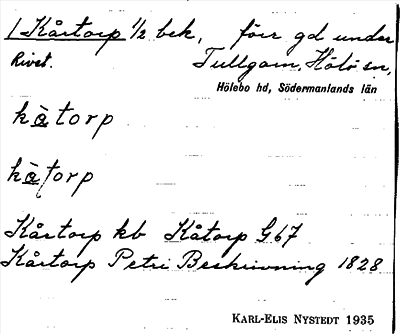 / Kårtorp ½ bek, förr gd under
Rivet. Tullgarn, Hölö sn,
Hölebo hd, Södermanlands län
kàtorp
kàtorp
Kårtorp kb Kåtorp G 67
Kårtorp Petri Beskrivning 1828
KARL-ELIS NYSTEDT 1935